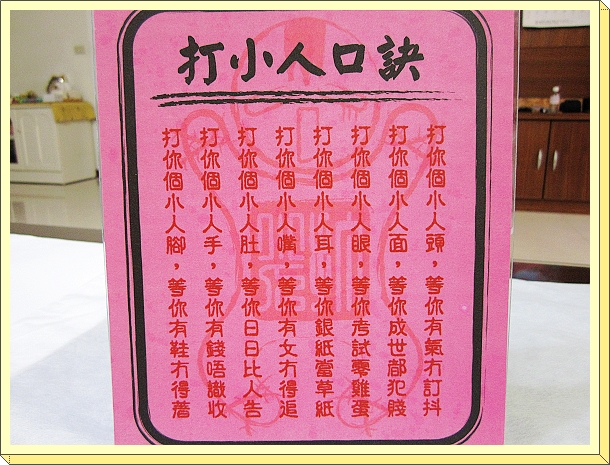 打小人口訣
打你個小人頭，等你有氣冇訂抖
打你個小人面，等你成世都犯賤
打你個小人眼，等你考試零雞蛋
打你個小人耳，等你銀紙當草紙
打你個小人嘴，等你有女冇得追
打你個小人肚，等你日日比人告
打你個小人手，等你有錢唔識收
打你個小人腳，等你有鞋冇得著